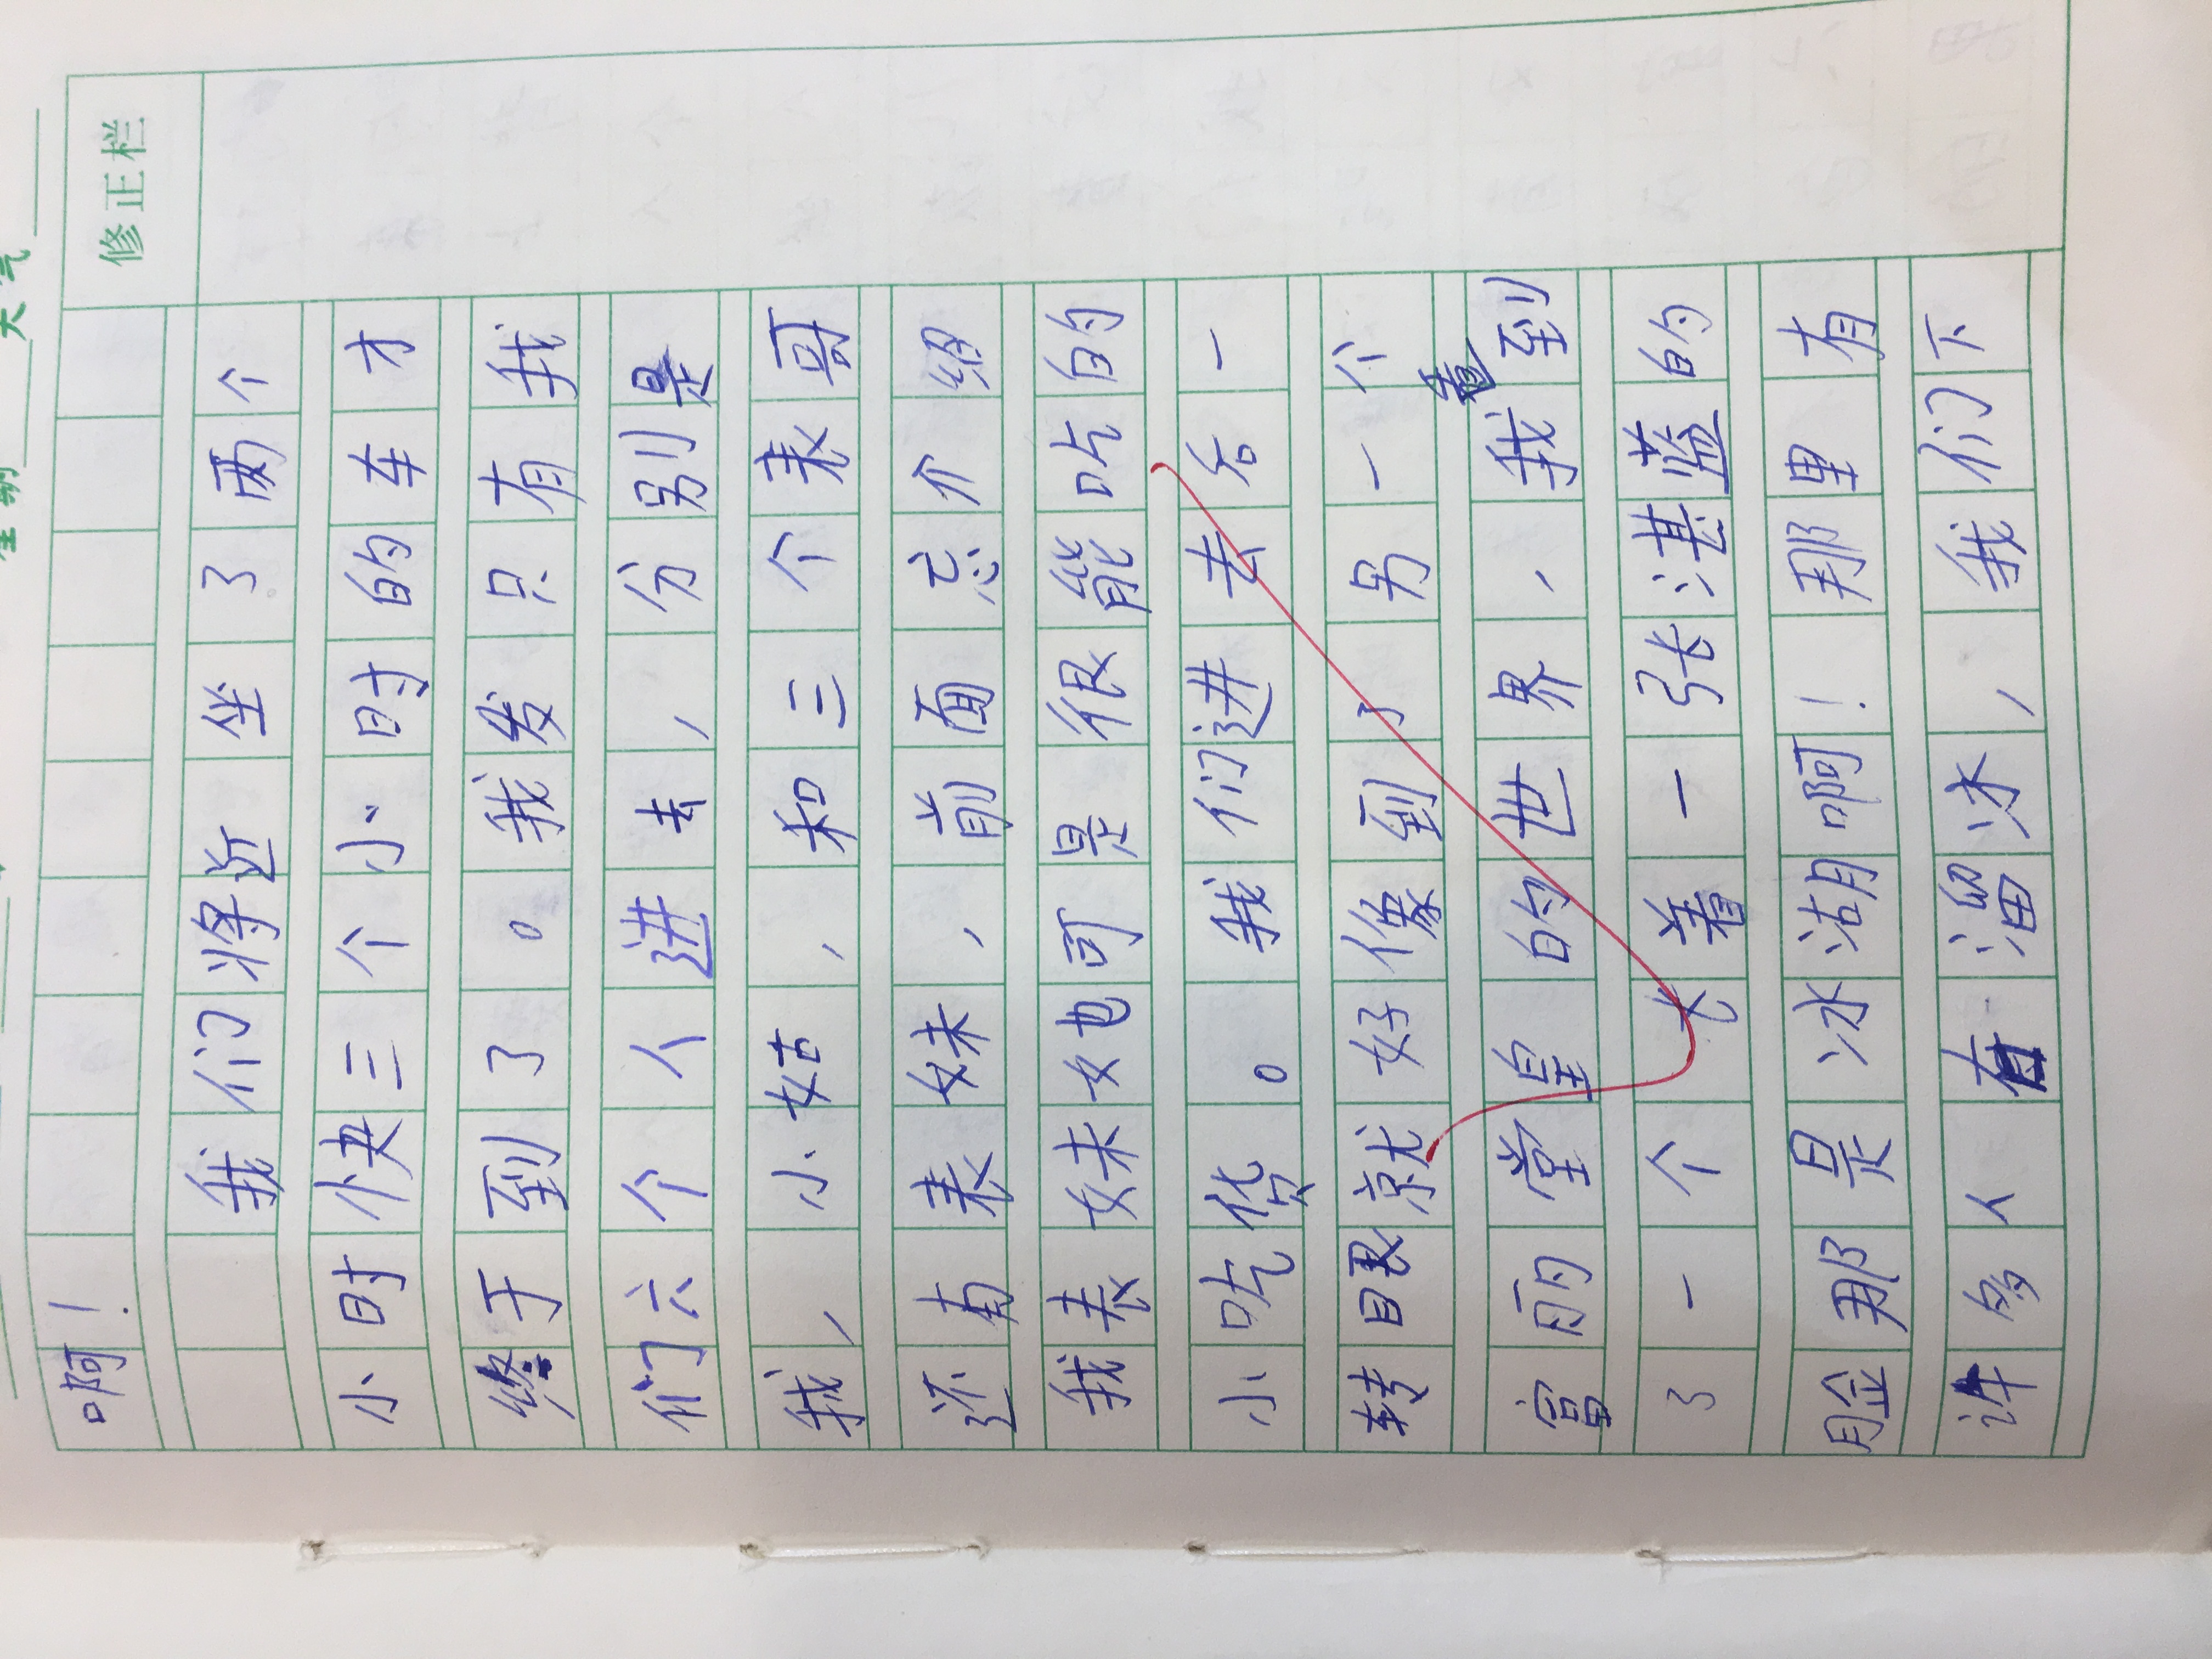 星期 天气
修正栏
啊！
我们将近坐了两个
小时快三个小时的车才
终于到了。我发只有我
们六个人进去，分别是
我，小姑，和三个表哥
还有表妹，前面忘介绍
我表妹她可是很能吃的
小吃货。我们进去后一
转眼就好像到了另一个
富丽堂皇的世界，我看到
了一个长着一张湛蓝的
脸那是冰湖啊！那里有
许多人在溜冰，我们下